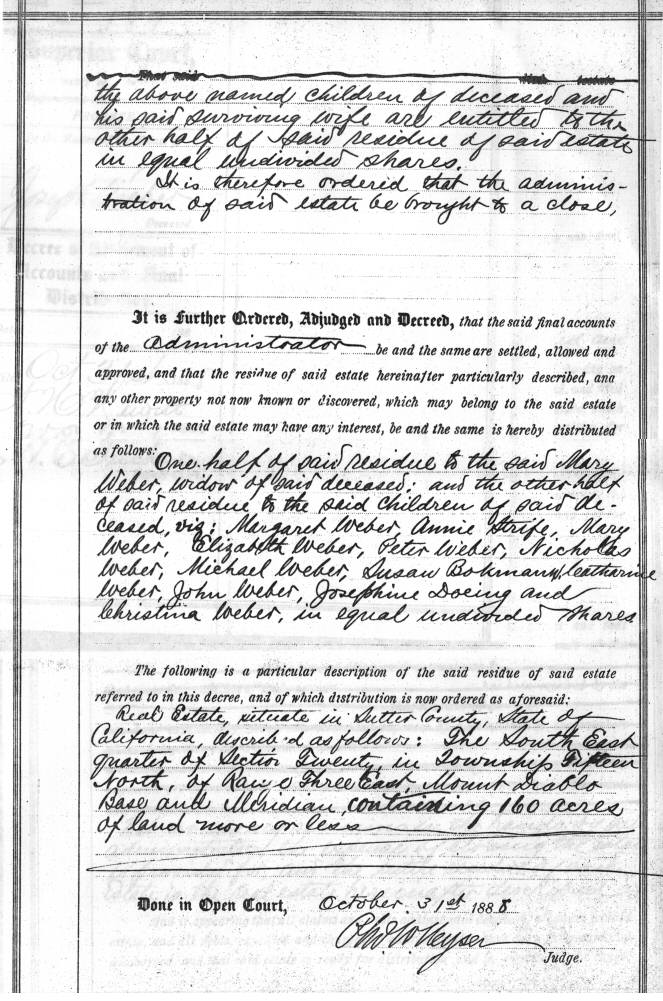 That said
the above named children of deceased and
his said surviving wife are entitled to the
other half of said residue of said estate
in equal undivided shares.
It is therefore ordered that the adminis-
tration of said estate be brought to a close,
It is Further Ordered, Adjudged and Decreed, that the said final accounts
of the Administrator be and the same are settled, allowed and
approved, and that the residue of said estate hereinafter particularly described, and
any other property not now known or discovered, which may belong to the said estate
or in which the said estate may have any interest, be and the same is hereby distributed
as follows:
One half of said residue to the said Mary
Weber, widow of said deceased; and the other half
of said residue to the said children of said de-
ceased, viz; Margaret Weber, Annie Strife, Mary
Weber, Elizabeth Weber, Peter Weber, Nicholas
Weber, Michael Weber, Susan Bokmann, Catharine
Weber, John Weber, Josephine Doeing and
Christina Weber, in equal undivided shares
The following is a particular description of the said residue of said estate
referred to in this decree, and of which distribution is now ordered as aforesaid:
Real Estate, situate in Sutter County, State of
California, describ d as follows: The South East
quarter of Section Twenty, in Township Fifteen
North, of Ran e Three East, Mount Diablo
Base and Meridian, containing 160 acres
of land more or less
Done in Open Court, October 31st 1888
Judge.